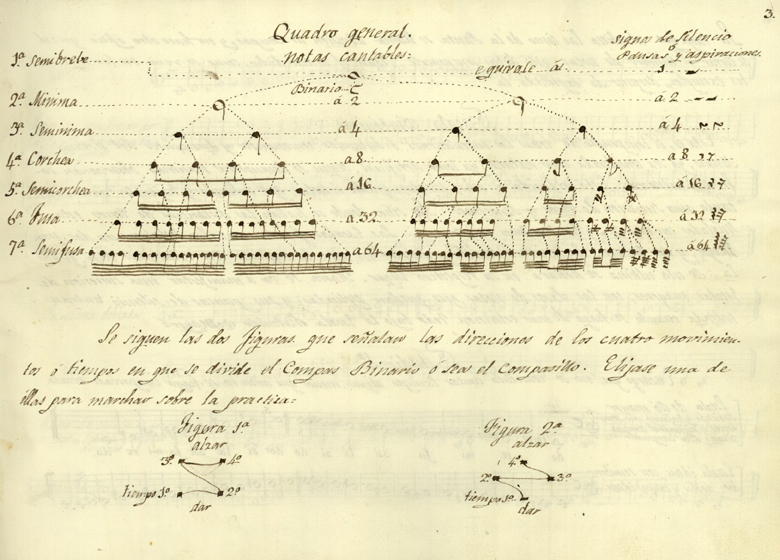 3.
Quadro general.
notas cantables:
signos de Silencio
Pausas ó y aspiraciones.
1ª Semibrebe equivale ás 1
Binario C
2ª Minima á 2 á 2
3ª Seminima á 4 á 4
4ª Corchea á 8 á 8
5ª Semicorchea á 16 á 16
6ª Fusa á 32 á 32
7ª Semifusa á 64 á 64
Se siguen las dos figuras que señalan las direcciones de los cuatro movimien-
tos ó tiempos en que se divide el Compas Binario ó sea el Compasillo. Elijase una de
ellas para marchar sobre la practica:
Figura 1ª
alzar
3º 4º
tiempo 1º 2º
dar
Figura 2ª
alzar
4º
2º 3º
tiempo 1º
dar